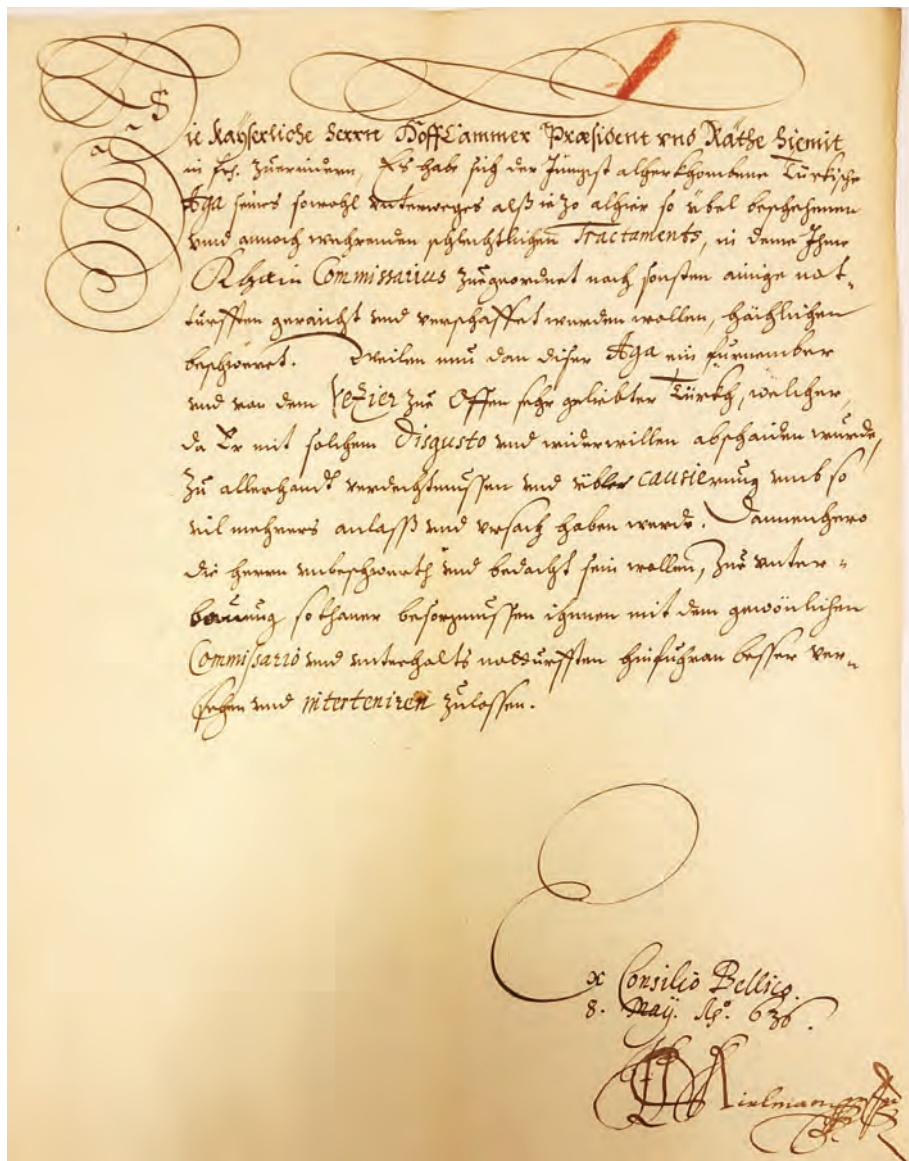 Die Kayserliche Herrn Hoff Cammer Præsident vnd Räthe hiemit
in frh. zuerindern, Es habe sich der Jüngst alher khombene Türkische
Aga seines sowohl unterweeges alß iezo alhier so übel beschehenen
vnnd annoch wehrenden schlechtlichen Tractaments, in deme Ihme
Khain Commissarius zuegeordnet noch sonsten ainige not-
turfften geraicht vnd verschaffet werden wollen, höchlichen
beschwert. Weilen nun dan diser Aga ein fürnember
vnd von dem Vezier zue Offen sehr geliebter Türkh, welcher,
da Er mit solchem Disgusto vnd widerwillen abschaiden wurde,
zu allerhandt verdechtnussen vnd übler causierung vmb so
vil mehrers anlaß vnd vrsach haben werde. Dannenhero
die herrn vnbeschwerth vnd bedacht sein wollen, zue vnter-
bauung sothaner besorgnussen ihnen mit dem gewönlichen
Commissario vnd vnterhalts notdurfften hinfuhran besser ver-
sehen vnd interteniren zulassen.
Ex Consilio Bellico.
8. Maÿ. Aō. 636.
Kielman